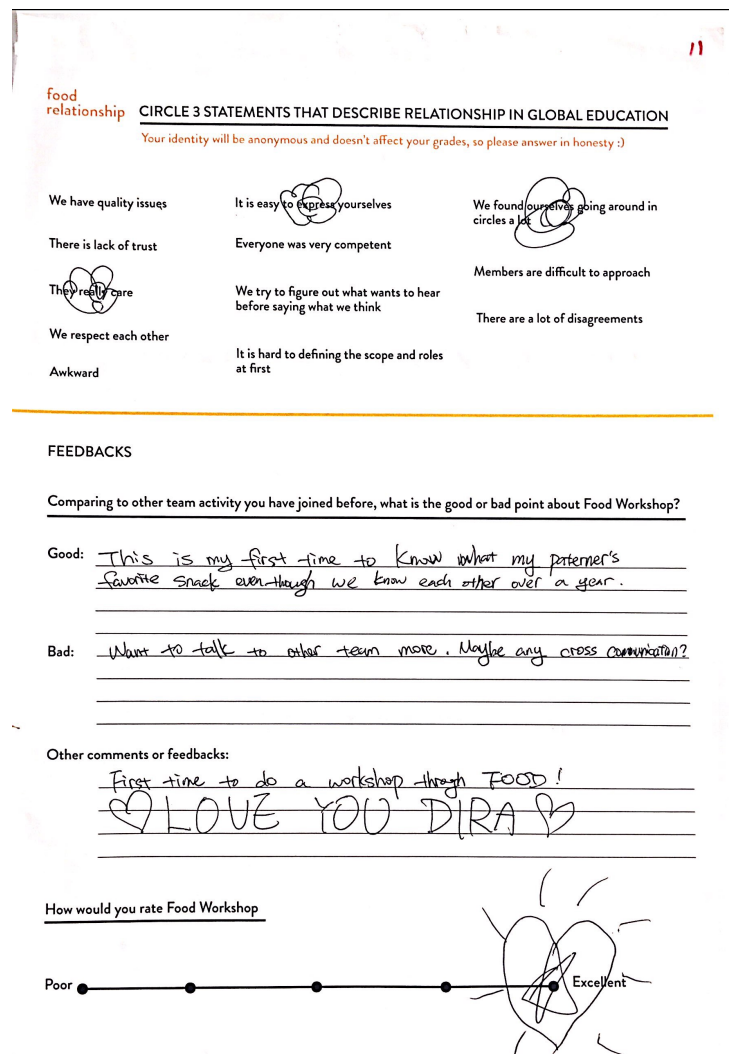 11
food
relationship
CIRCLE 3 STATEMENTS THAT DESCRIBE RELATIONSHIP IN GLOBAL EDUCATION
Your identity will be anonymous and doesn't affect your grades, so please answer in honesty :)
We have quality issues
There is lack of trust
They really care
We respect each other
Awkward
It is easy to express yourselves
Everyone was very competent
We try to figure out what wants to hear
before saying what we think
It is hard to defining the scope and roles
at first
We found ourselves going around in
circles a lot
Members are difficult to approach
There are a lot of disagreements
FEEDBACKS
Comparing to other team activity you have joined before, what is the good or bad point about Food Workshop?
Good: This is my first time to know what my paterner's
favorite snack even though we know each other over a year.
Bad: Want to talk to other team more. Maybe any cross communication?
Other comments or feedbacks:
First time to do a workshop throgh FOOD!
♡ LOVE YOU DIRA ♡
How would you rate Food Workshop
Poor Excellent